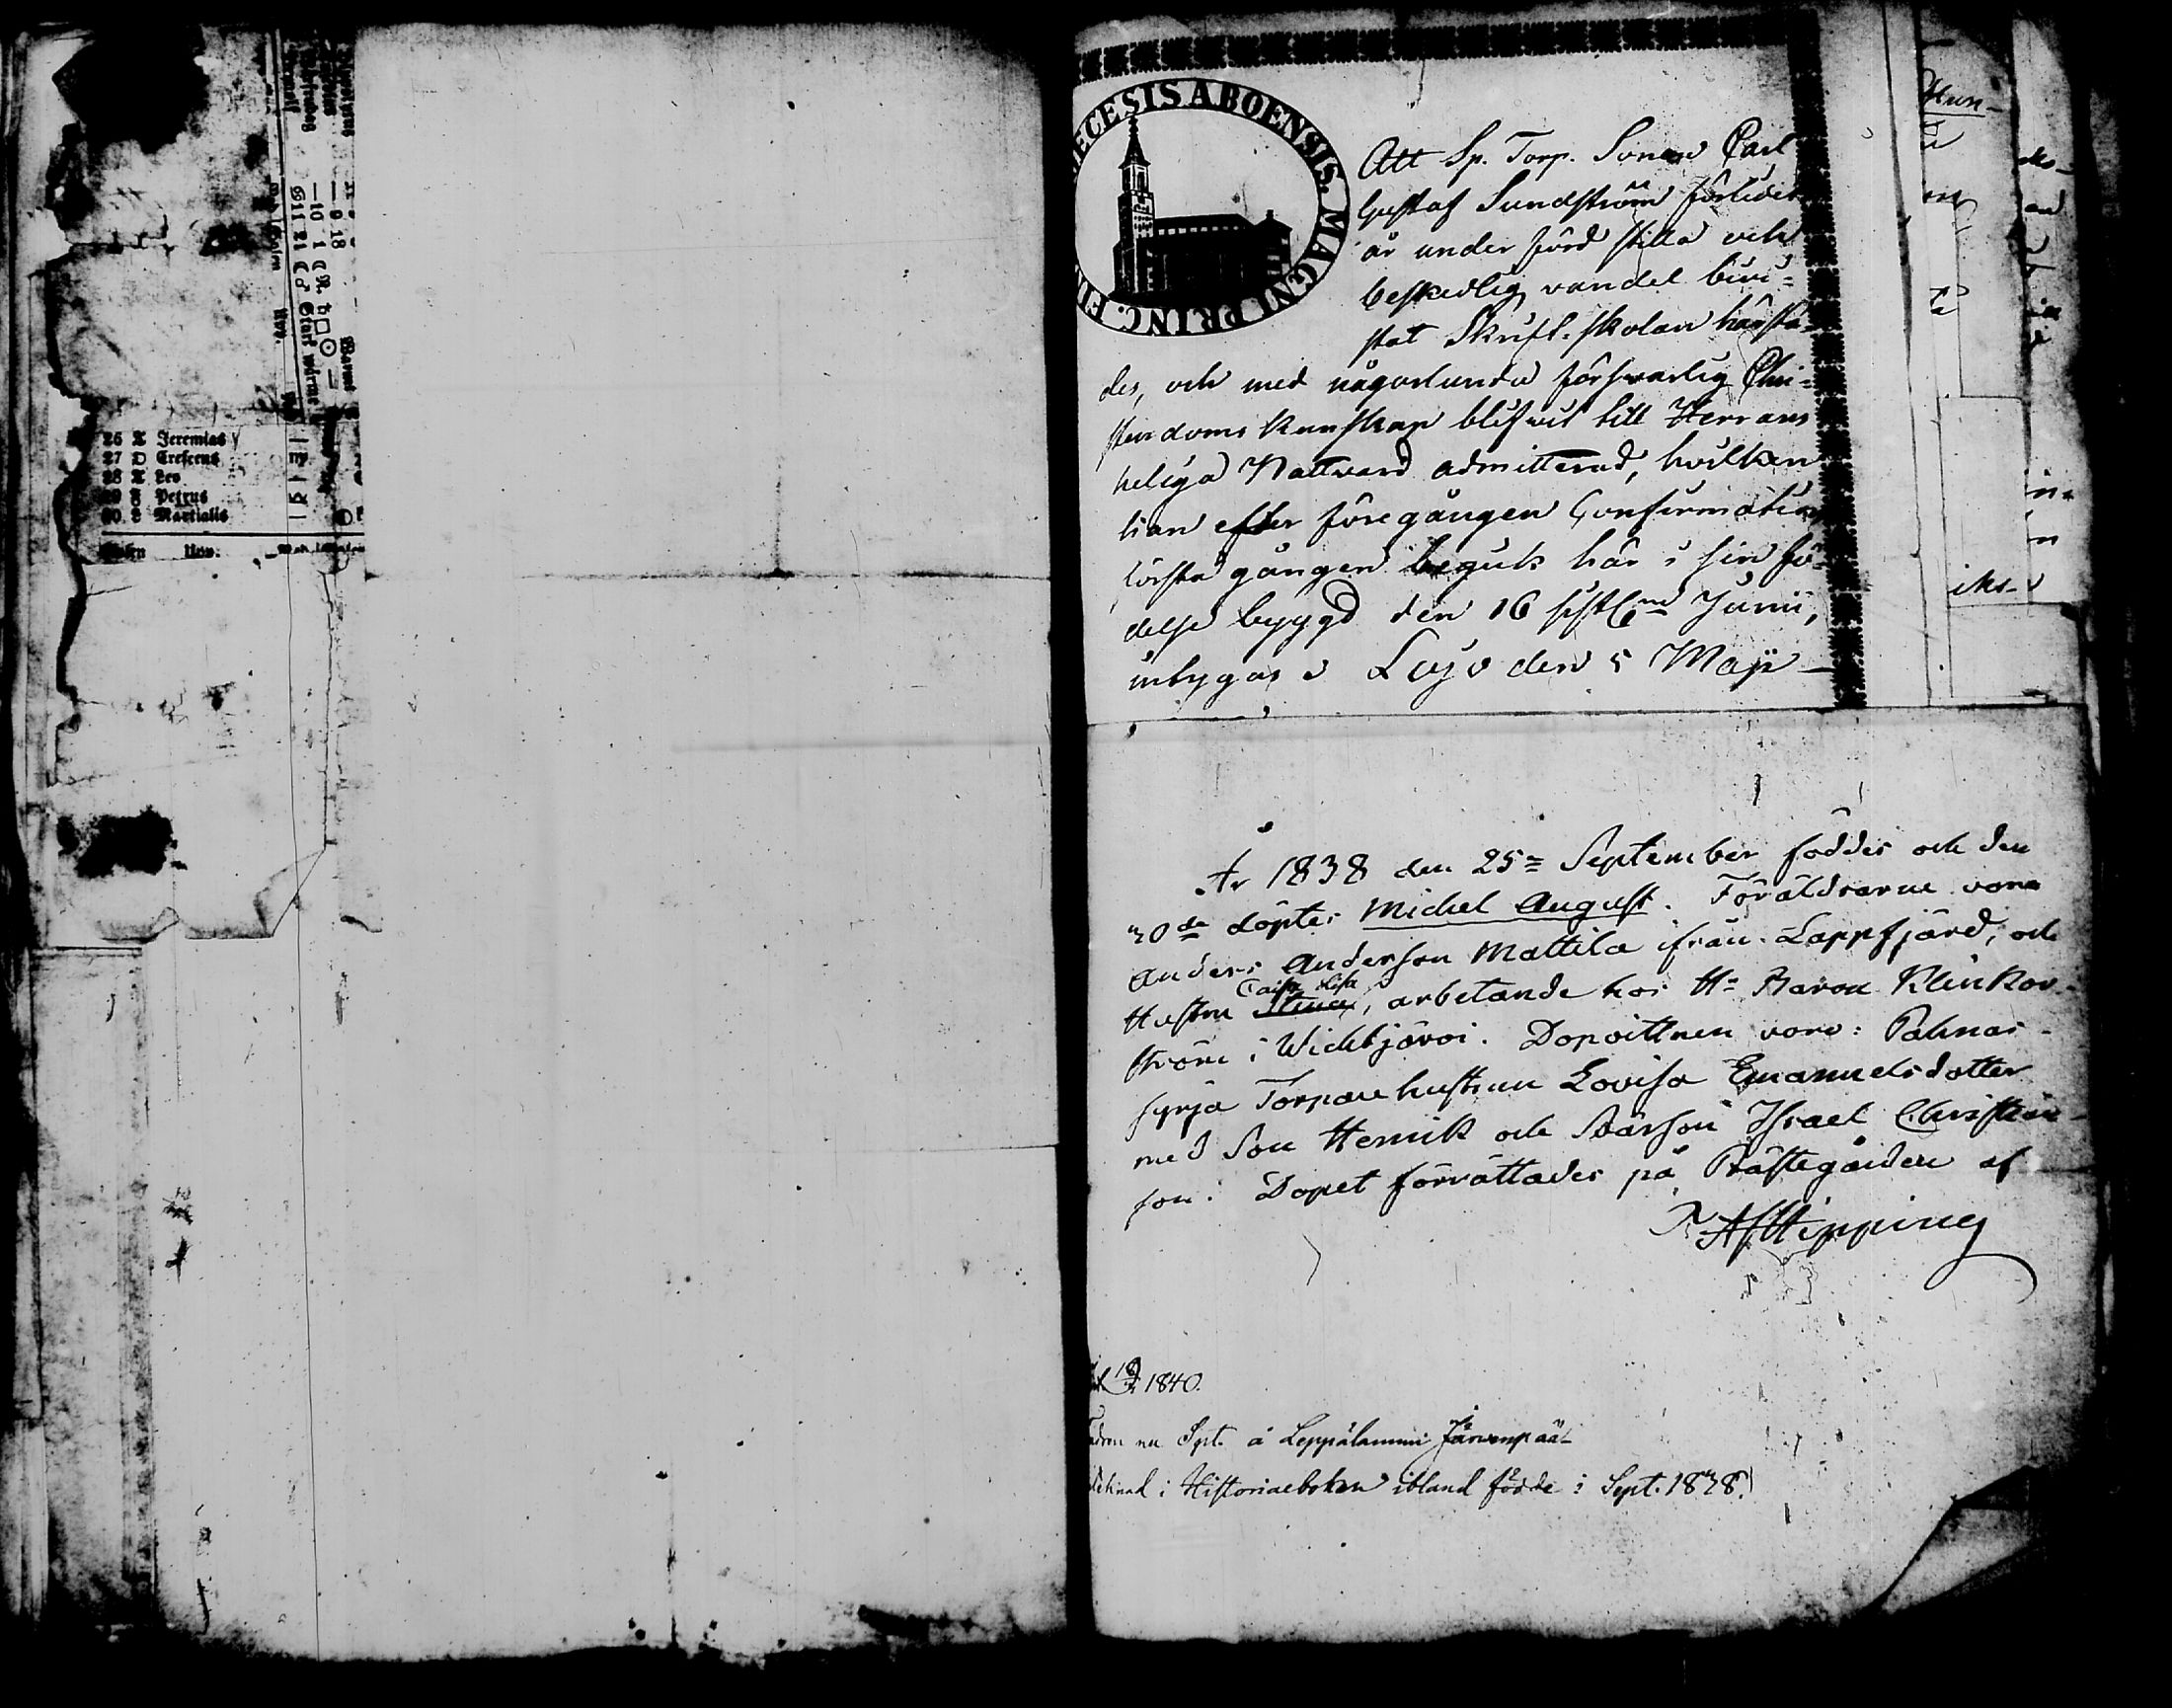 26 T Jeremias
27 O Crescens
28 T Leo
29 F Petrus
30 S Martialis
DIOECESIS ABOENSIS. MAGNI PRINC. FIN
Att Sp. Torp. Sonen Carl
Gustaf Sundström förlidet
år under förd stilla och
beskedlig vandel bevi-
stat Skrift. skolan härstä-
des, och med någorlunda förswarlig Chri-
stendoms kunskap blifwit till Herrans
heliga Nattvard admitterad, hvilken
han efter föregången Confirmation
första gången begick här i sin fö-
delse bygd den 16 sistl. Junii,
intygas Lojo den 5 Maji
År 1838 den 25 September föddes och den
30de döptes Michel August. Föräldrarne voro
Anders Anderson Mattila ifrån Lappfjärd, och
Caisa Lisa
Hustru Stina, arbetande hos Hr Baron Klinkow-
ström i Wichtjärvi. Dopvittnen voro: Pahnais-
syrja Torpare hustrun Lovisa Emanuelsdotter
med Son Henrik och Israel Christian-
son. Dopet förrättades på Prästegården af
F A Hipping
1840.
nu Spt. å Leppälammi Järvenpää
i Historiæboken ibland födde i Sept. 1838.
iks-